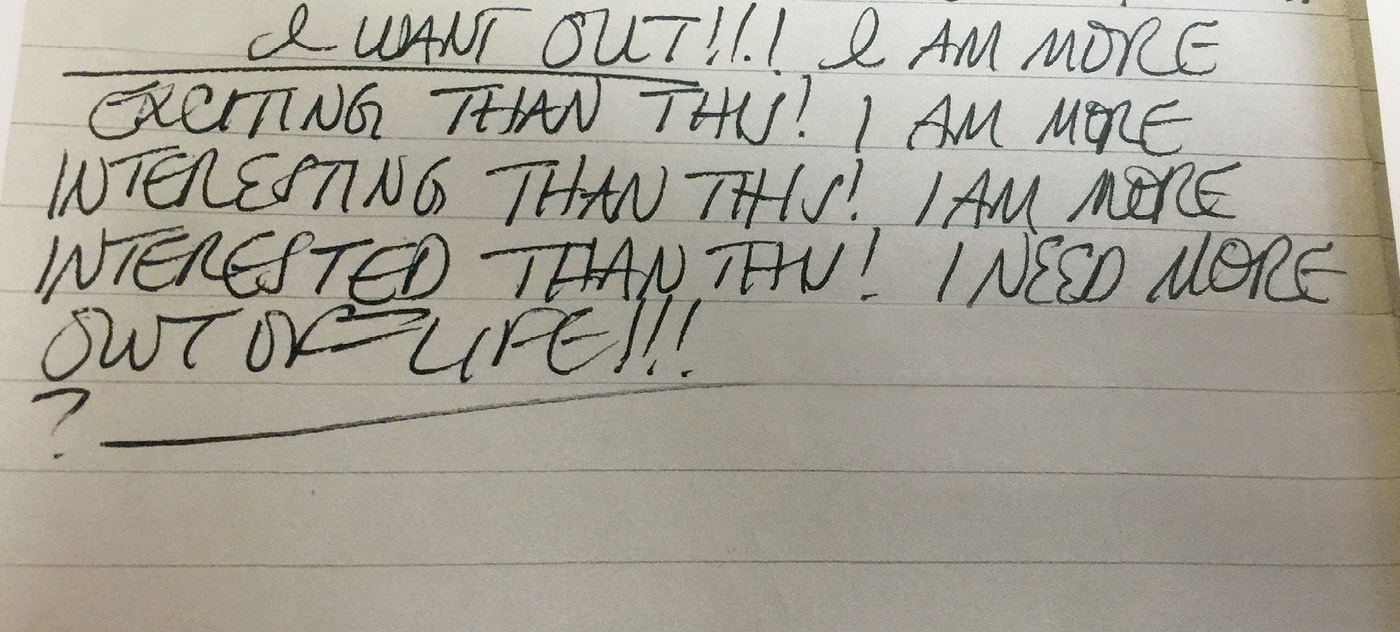 I WANT OUT!!!! I AM MORE
EXCITING THAN THIS! I AM MORE
INTERESTING THAN THIS! I AM MORE
INTERESTED THAN THIS! I NEED MORE
OUT OF LIFE!!!
?